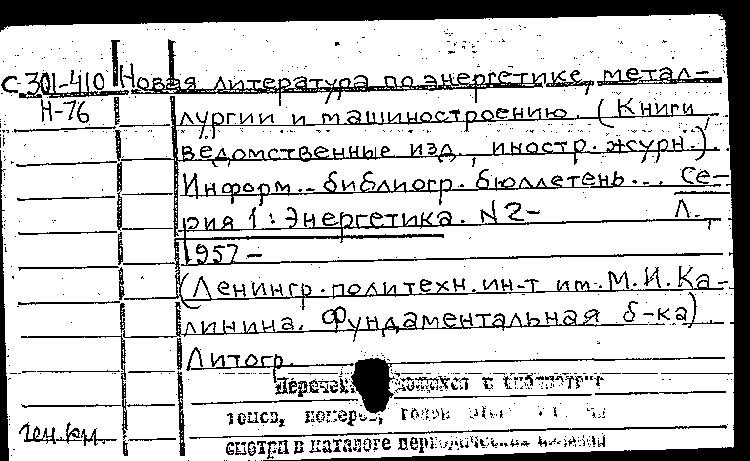 С 301-410 Новая литература по энергетике, метал-
Н-76 лургии и машиностроению. (Книги,
ведомственные изд., иностр. журн.).
Информ.-библиогр. бюллетень... Се-
рия 1: Энергетика. N 2- Л.,
1957-
(Ленингр. политехн. ин-т им. М.И. Ка-
линина. Фундаментальная б-ка).
Литогр.
в
томов, номеров, годов
ген. кн.
смотри в каталоге периодических изданий